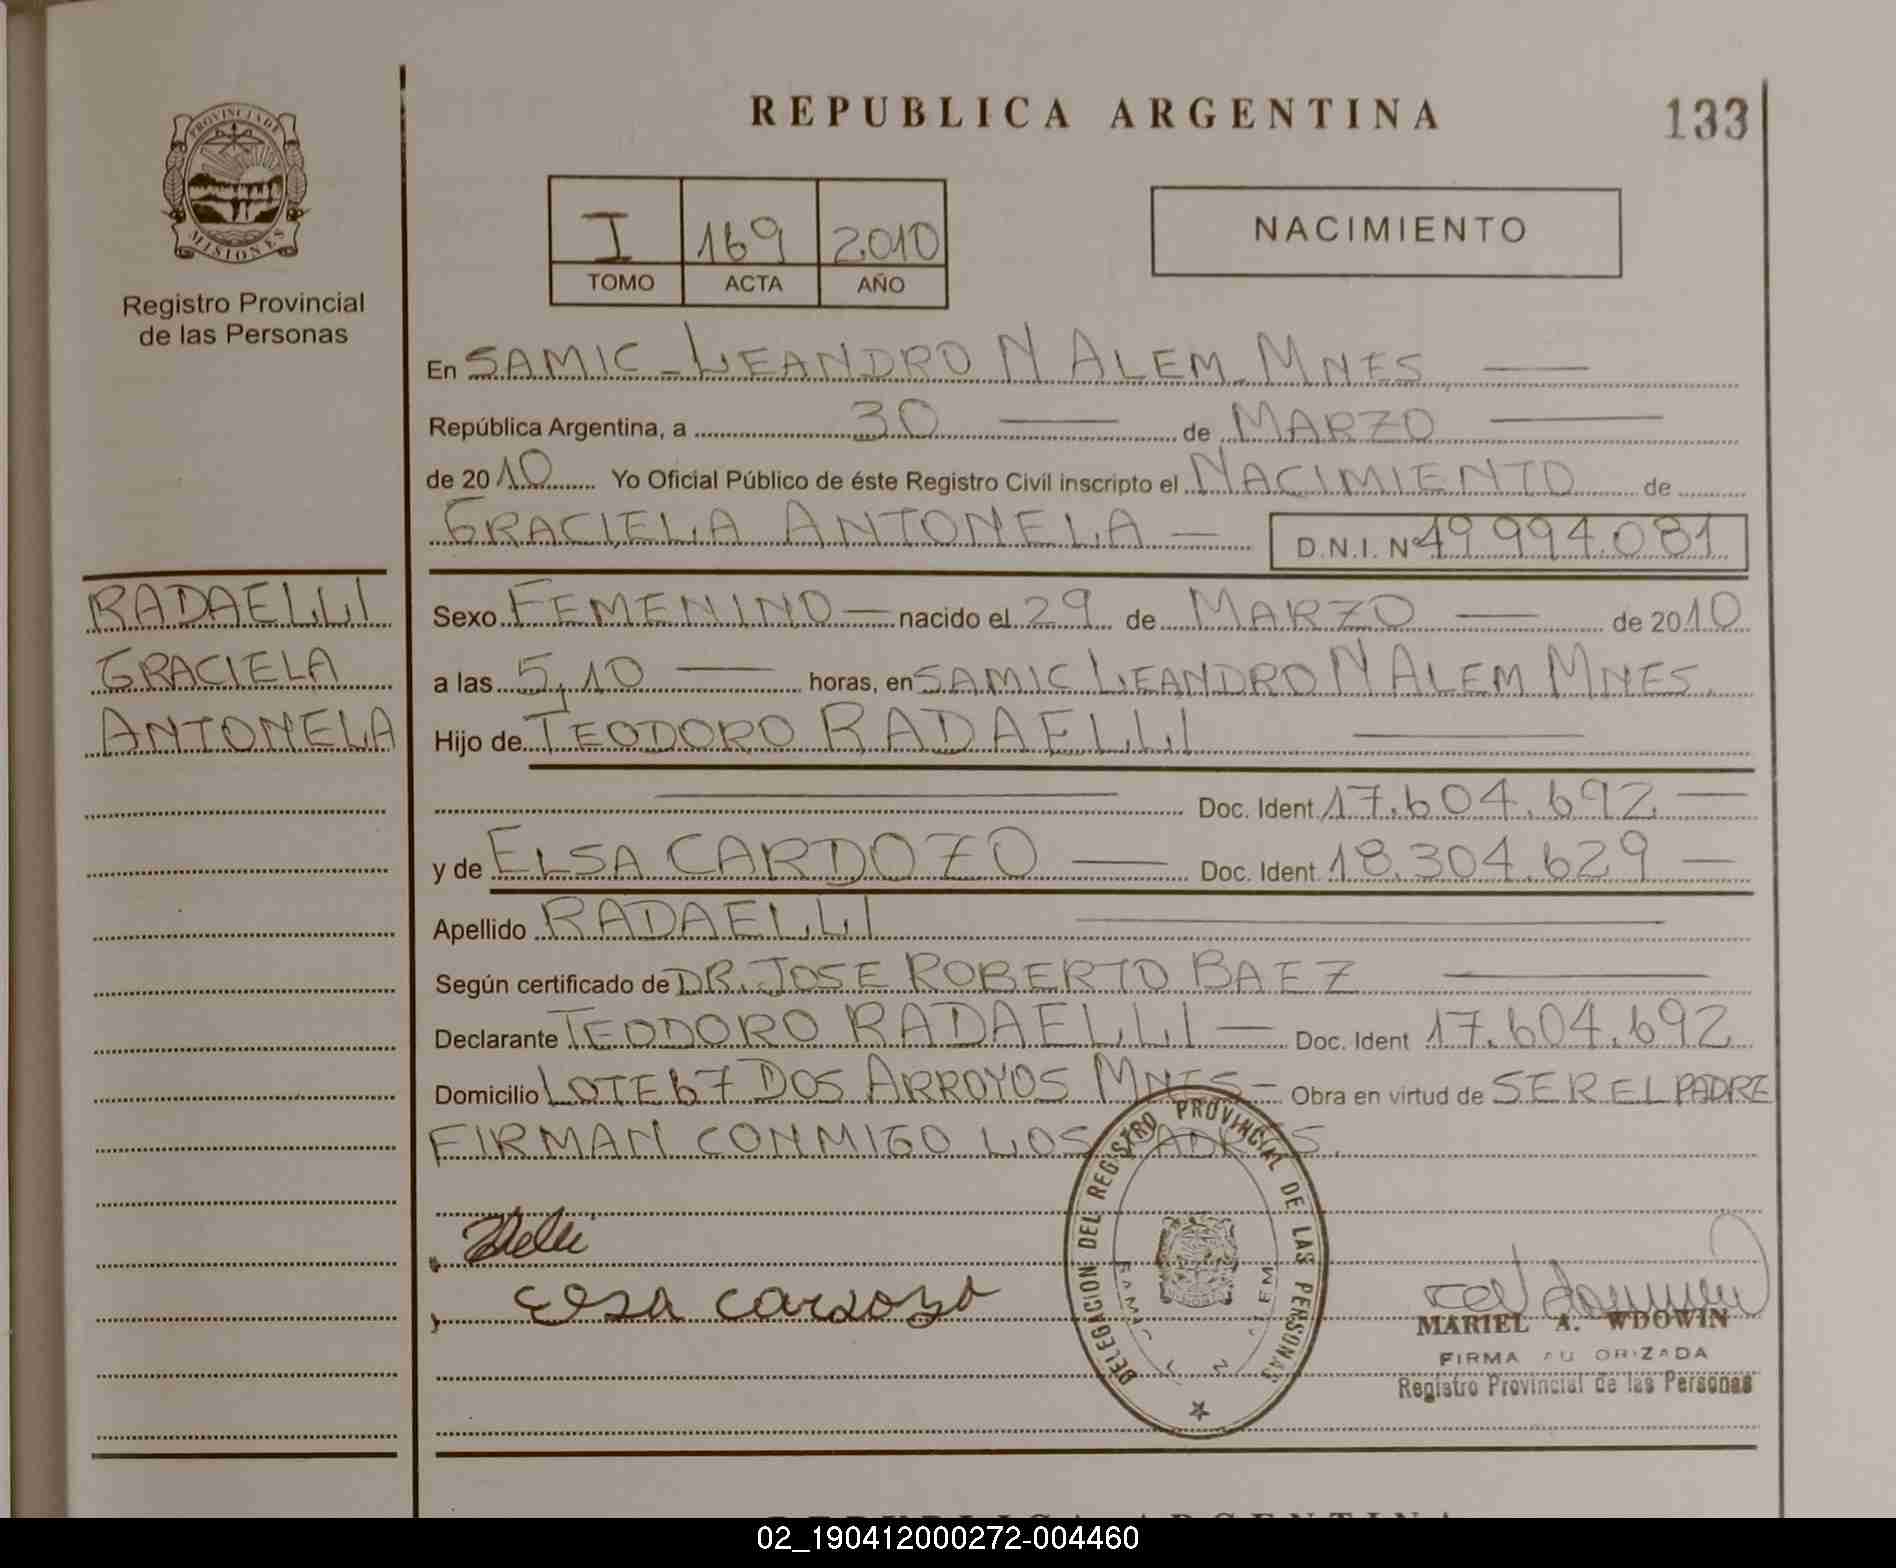 REPUBLICA ARGENTINA
133
PROVINCIA DE
MISIONES
Registro Provincial
de las Personas
I 169 2010
TOMO ACTA AÑO
NACIMIENTO
En SAMIC - LEANDRO N ALEM - MNES
República Argentina, a 30 de MARZO
de 2010 Yo Oficial Público de éste Registro Civil inscripto el NACIMIENTO de
GRACIELA ANTONELA D.N.I. Nº 49 994.081
RADAELLI
GRACIELA
ANTONELA
Sexo FEMENINO nacido el 29 de MARZO de 2010
a las 5,10 horas, en SAMIC LEANDRO N ALEM MNES.
Hijo de TEODORO RADAELLI
Doc. Ident 17.604.692
y de ELSA CARDOZO Doc. Ident 18.304.629
Apellido RADAELLI
Según certificado de DR. JOSE ROBERTO BAEZ
Declarante TEODORO RADAELLI Doc. Ident 17.604.692
Domicilio LOTE 67 DOS ARROYOS MNES - Obra en virtud de SER EL PADRE
FIRMAN CONMIGO LOS PADRES.
DELEGACION DEL REGISTRO PROVINCIAL DE LAS PERSONAS
SAMIC L N ALEM
Elsa Cardozo
MARIEL A. WDOWIN
FIRMA AUTORIZADA
Registro Provincial de las Personas
REPUBLICA ARGENTINA
02_190412000272-004460